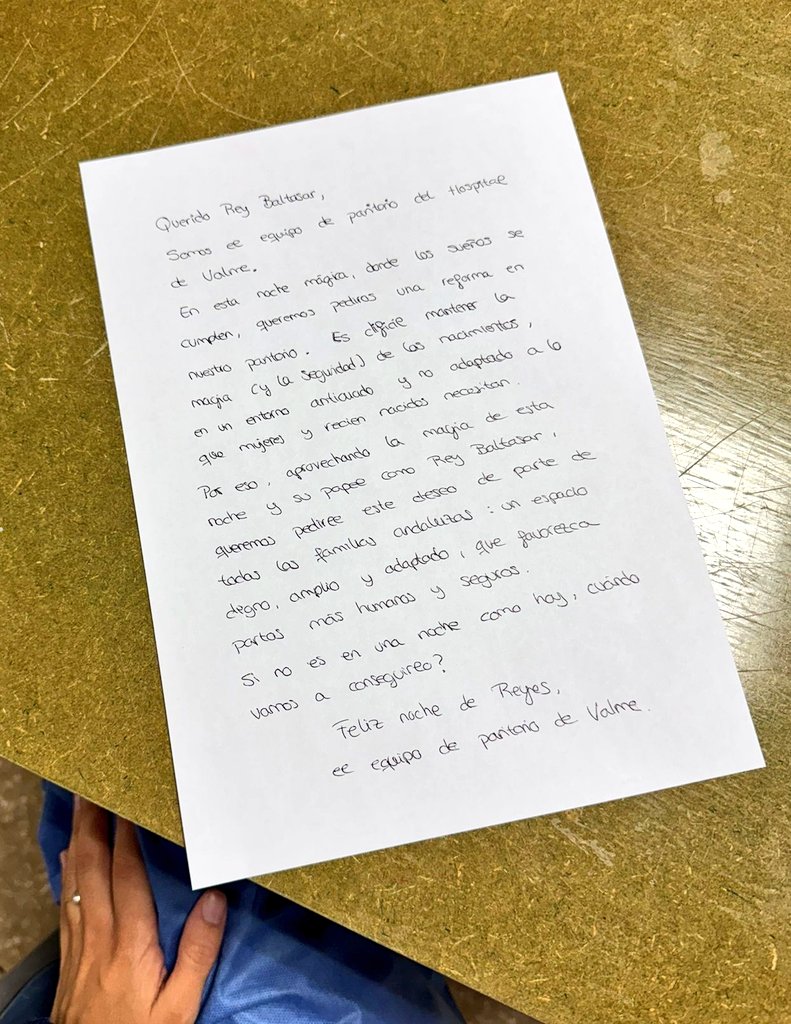 Querido Rey Baltasar,
Somos el equipo de paritorio del Hospital
de Valme.
En esta noche mágica, donde los sueños se
cumplen, queremos pediros una reforma en
nuestro paritorio. Es difícil mantener la
magia (y la seguridad) de los nacimientos,
en un entorno anticuado y no adaptado a lo
que mujeres y recien nacidos necesitan.
Por eso, aprovechando la magia de esta
noche y su papel como Rey Baltasar,
queremos pedirle este deseo de parte de
todas las familias andaluzas: un espacio
digno, amplio y adaptado, que favorezca
partos más humanos y seguros.
Si no es en una noche como hoy, cuándo
vamos a conseguirlo?
Feliz noche de Reyes,
el equipo de paritorio de Valme.